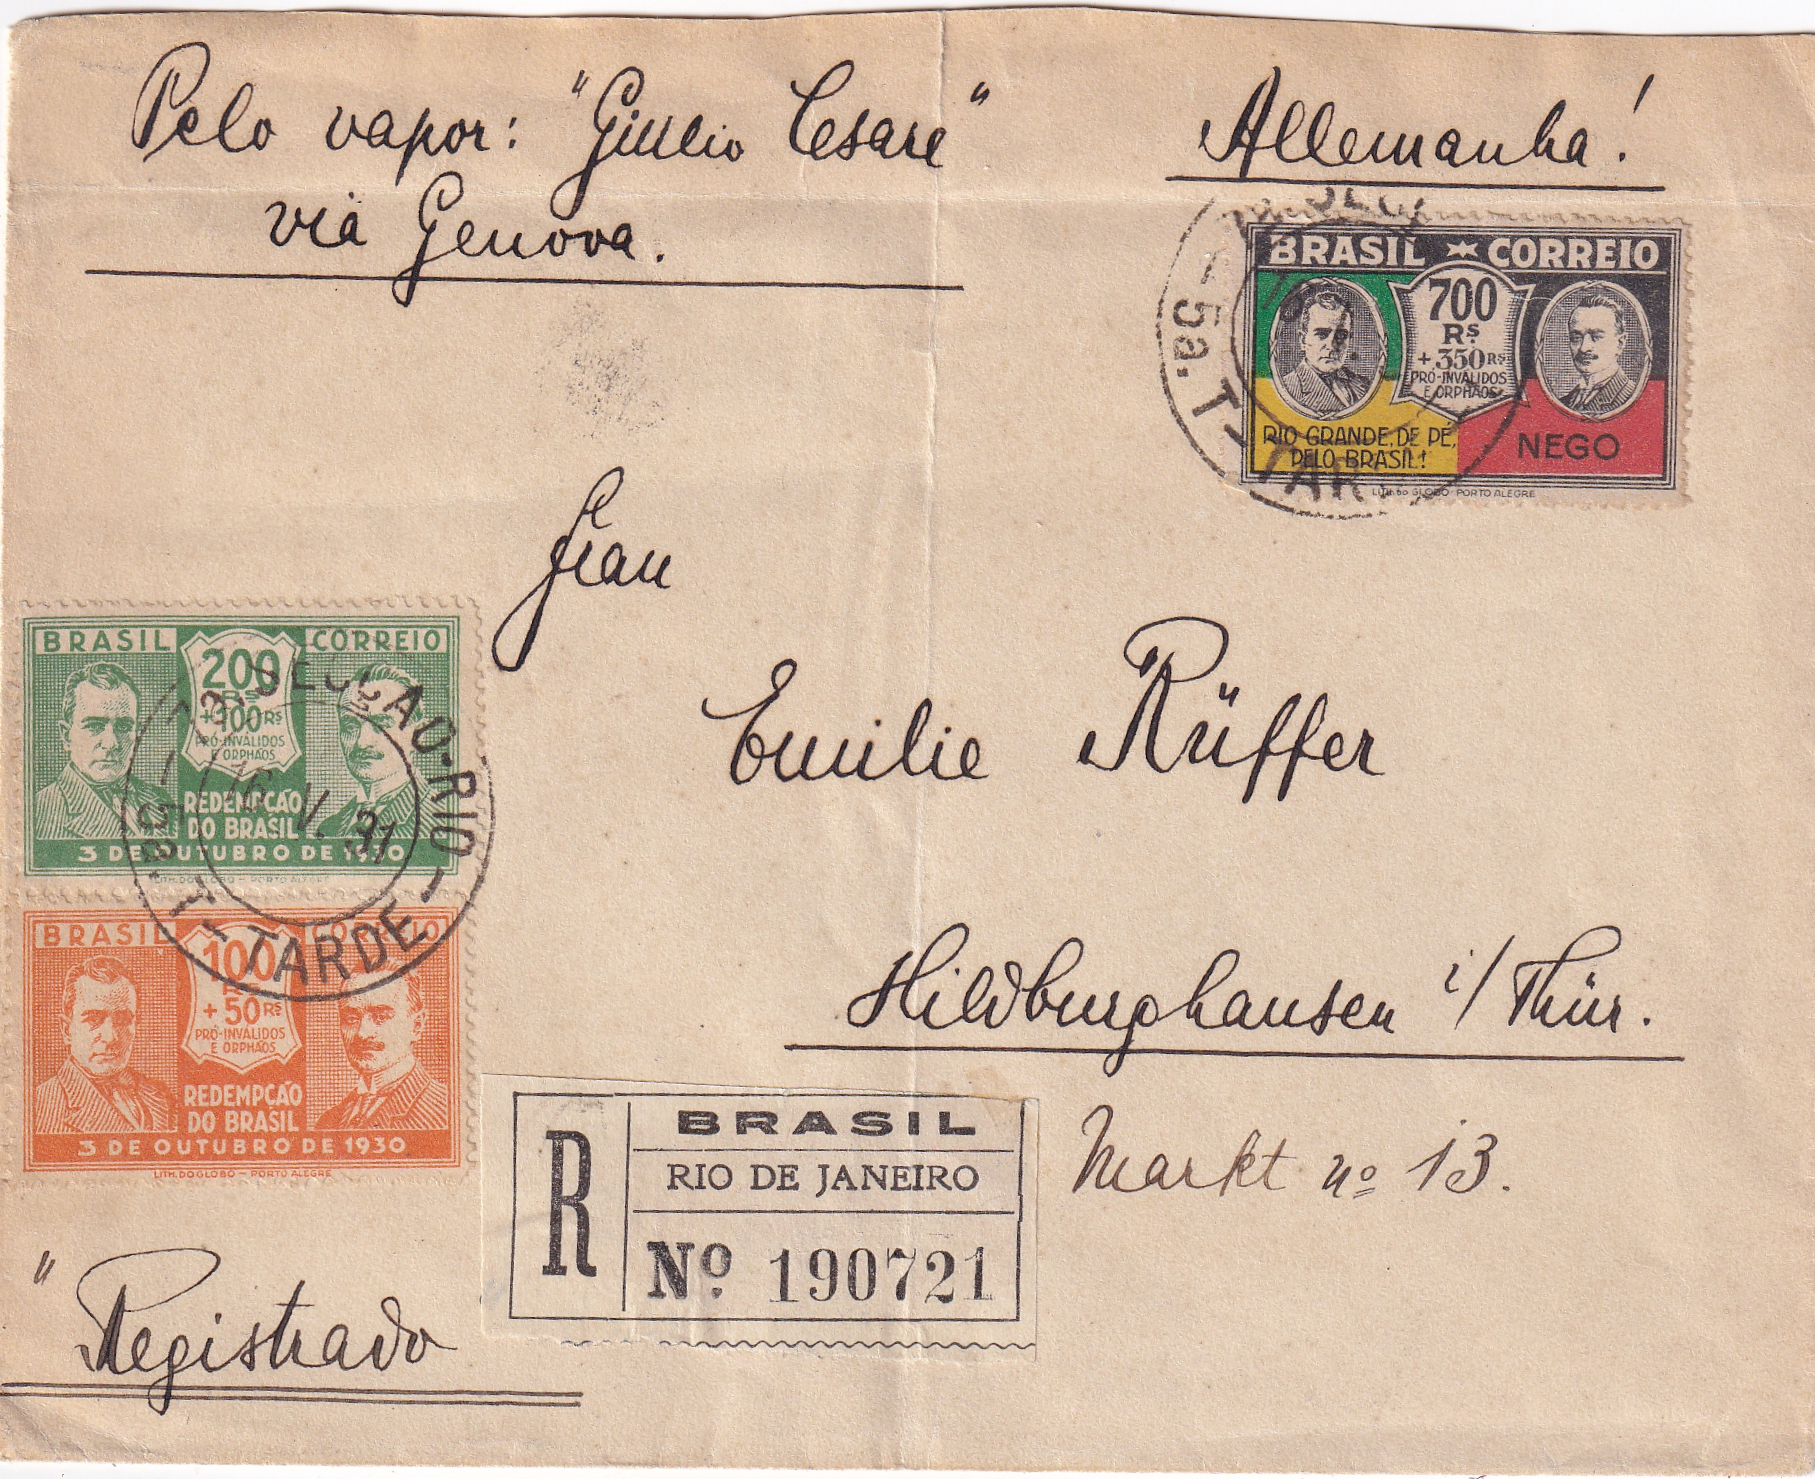 Pelo vapor: "Giulio Cesare"
via Genova.
Allemanha!
BRASIL CORREIO
700
RS
+350RS
PRÓ-INVÁLIDOS
E ORPHÃOS
RIO GRANDE, DE PÉ,
PELO BRASIL!
NEGO
LITH. DO GLOBO PORTO ALEGRE
5a. T - TAR
Frau
Emilie Rüffer
Hildburghausen i/Thür.
Markt nº 13.
BRASIL CORREIO
200
RS
+100RS
PRÓ-INVÁLIDOS
E ORPHÃOS
REDEMPCÃO
DO BRASIL
3 DE OUTUBRO DE 1930
LITH. DO GLOBO - PORTO ALEGRE
SECÇÃO - RIO -
16 V. 31
5a. T - TARDE
BRASIL CORREIO
100
+50RS
PRÓ-INVÁLIDOS
E ORPHÃOS
REDEMPCÃO
DO BRASIL
3 DE OUTUBRO DE 1930
LITH. DO GLOBO - PORTO ALEGRE
R
BRASIL
RIO DE JANEIRO
Nº 190721
"Registrado